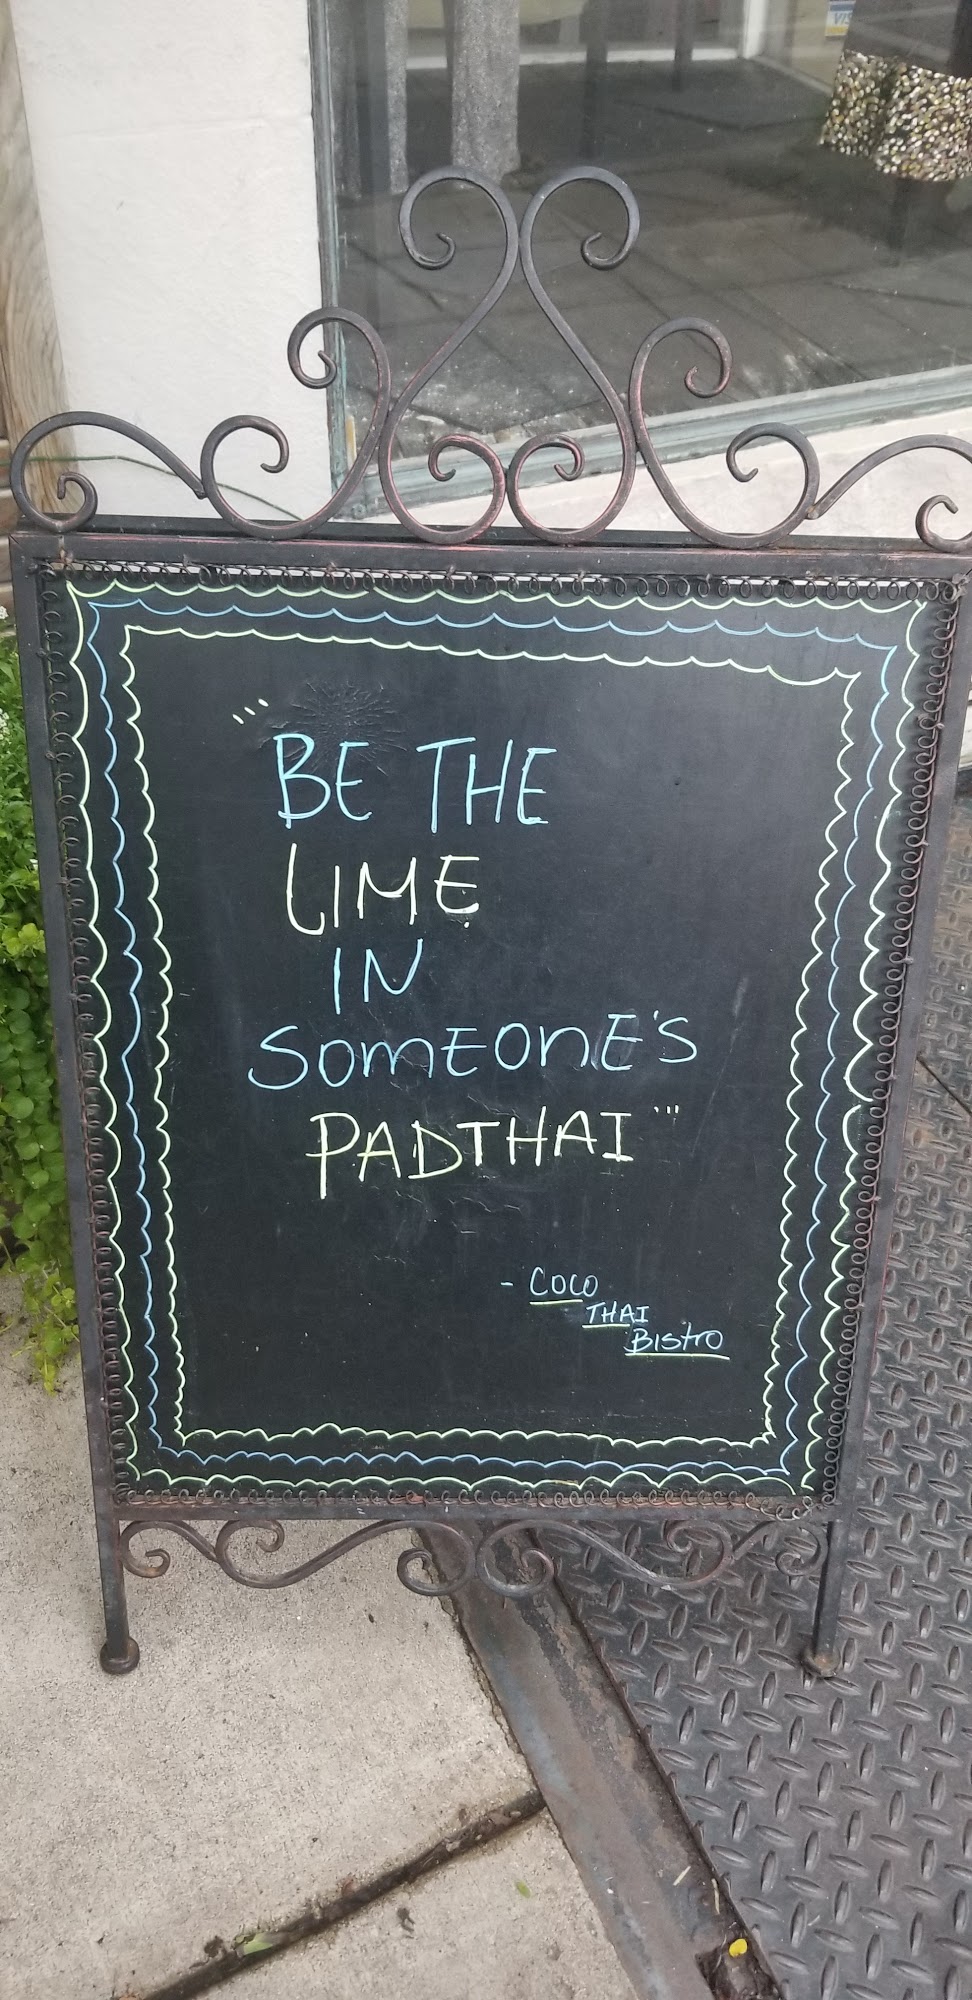 VIS
"' BE THE
LIME
IN
SOMEONE'S
PADTHAI "'
- COCO
THAI
BISTRO